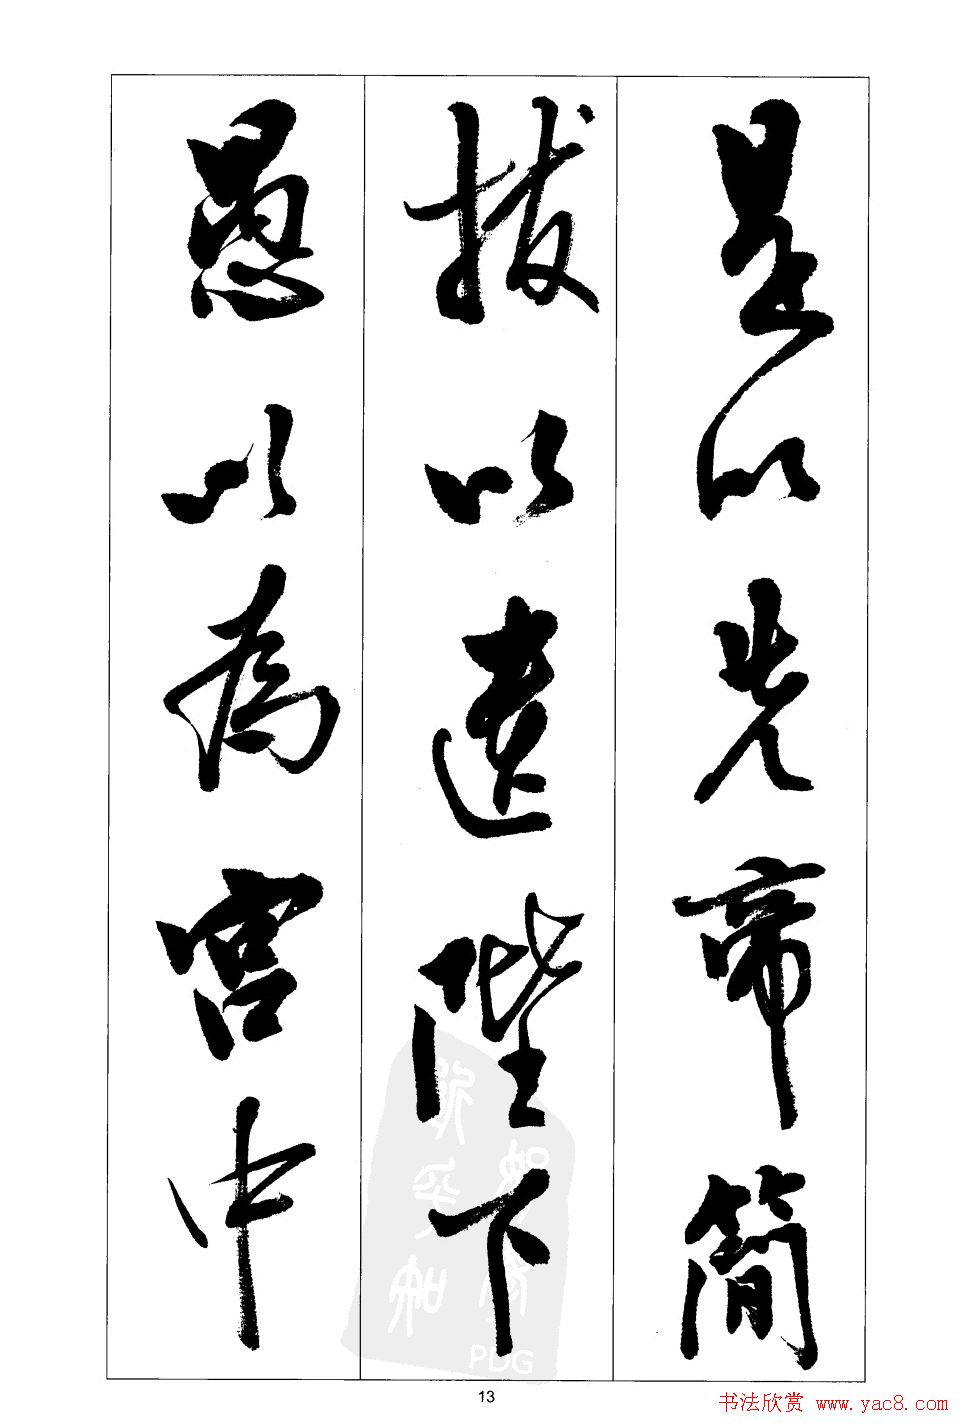 是以先帝简
拔以遗陛下
愚以为宫中
PDG
13
书法欣赏 www.yac8.com